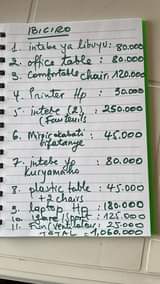 IBICIRO
1. intebe ya libuyu: 80.000
2. office table : 80.000
3. comfortable chair: 120.000
4. Printer Hp : 50.000
5. intebe (2) : 250.000
(Fauteuils
6. : 45.000
7. intebe yo : 80.000
Kuryamaho
8. plastic table : 45.000
+ 2 chairs
9. laptop Hp : 180.000
10. : 125.000
11. Fun (ventilateur: 25.000
TOTAL = 1.060.000